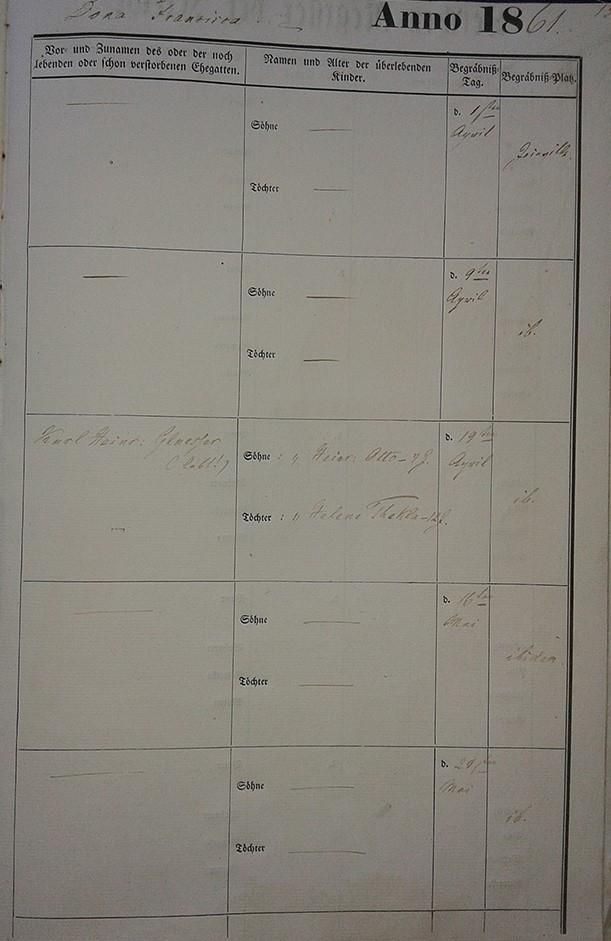 Dona Francisca Anno 1861.
Vor- und Zunamen des oder der noch
lebenden oder schon verstorbenen Ehegatten.
Namen und Alter der überlebenden
Kinder.
Begräbniß-
Tag.
Begräbniß-Platz.
Söhne
Töchter
d. 1sten
April
Joinville.
Söhne
Töchter
d. 9ten
April
ib.
Karl Heinr:
(lebt!)
Söhne : „ Heinr: Otto –
Töchter : „ Helene Thekla –
d. 19ten
April
ib.
Söhne
Töchter
d. 16ten
Mai
ibidem
Söhne
Töchter
d.
Mai
ib.